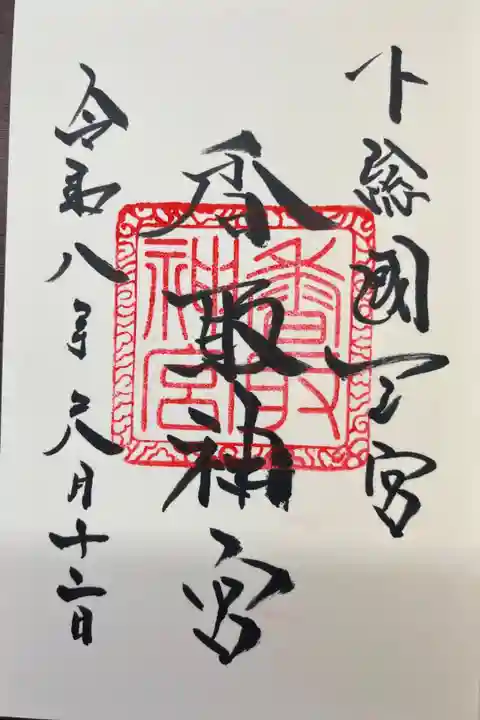 下総國一之宮
香取神宮
香取神宮
令和八年六月十二日